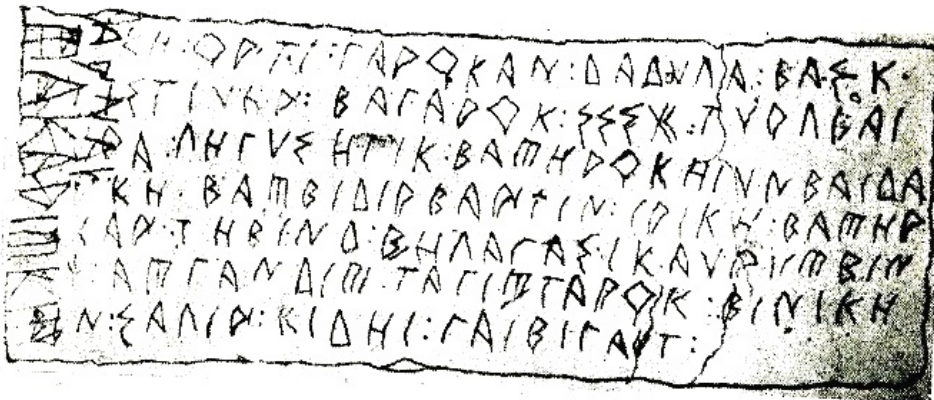 ΟΡΤΙ:ΓΑΡΟΚΑΝ:ΔΑΔΥΛΑ:ΒΑΣΚ·
ΣΤΙΝΗΡ:ΒΑΓΑΡΟΚ:ΣΣΣΧ:ΤΥΡΛΒΑΙ
ΡΑ:ΛΗΓΥΣΗΓΙΚ:ΒΑͲΗΡΟΚΗΙΥΝΒΑΙΔΑ
ΚΗ:ΒΑͲΒΙΔΙΡΒΑΡΤΙΝ:ΙΡΙΚΗ:ΒΑͲΗΡ
ΚΑΡ:ΤΗΒΙΝΔ:ΒΗΛΑΓΑΣΙΚΑΥΡ:ΙͲΒΙΝ
ΑͲΓΑΝΔΙͲ:ΤΑΓΙͲΓΑΡΟΚ:ΒΙΝΙΚΗ
Ν:ΣΑΛΙΡ:ΚΙΔΗΙ:ΓΑΙΒΙΓΑΙΤ: